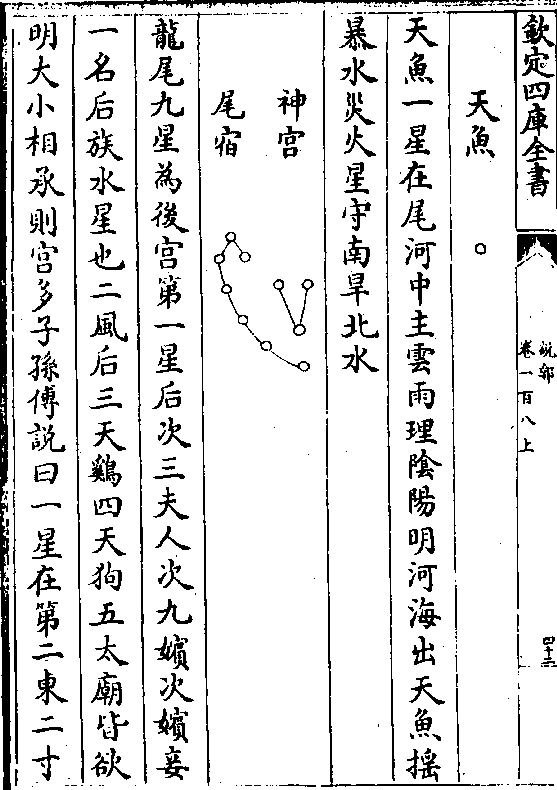 欽定四庫全書
說郛
卷一百八上
四十三
天魚
天魚一星在尾河中主雲雨理陰陽明河海出天魚揺
暴水災火星守南旱北水
神宮
尾宿
龍尾九星為後宮第一星后次三夫人次九嬪次嬪妾
一名后族水星也二風后三天鷄四天狗五太廟皆欲
明大小相承則宮多子孫傅說曰一星在第二東二寸